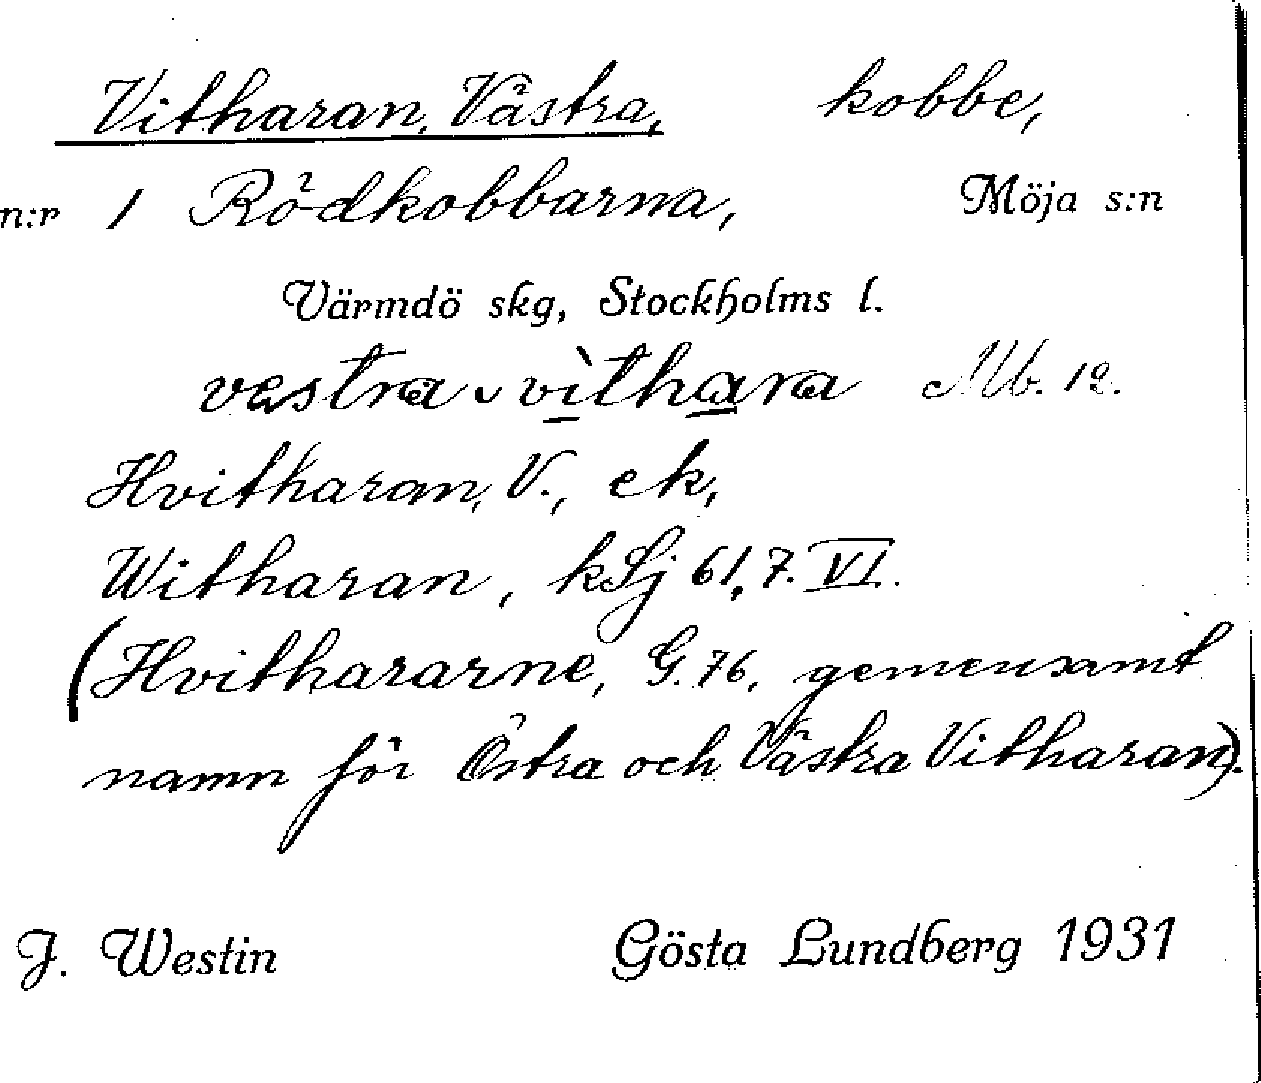 Vitharan, Västra, kobbe,
n:r 1 Rödkobbarna, Möja s:n
Värmdö skg, Stockholms l.
vestra vìthara Mb. 12.
Hvitharan, V., ek,
Witharan, kSj 61, 7. VI.
(Hvithararne, G. 76, gemensamt
namn för Östra och Västra Vitharan).
J. Westin Gösta Lundberg 1931